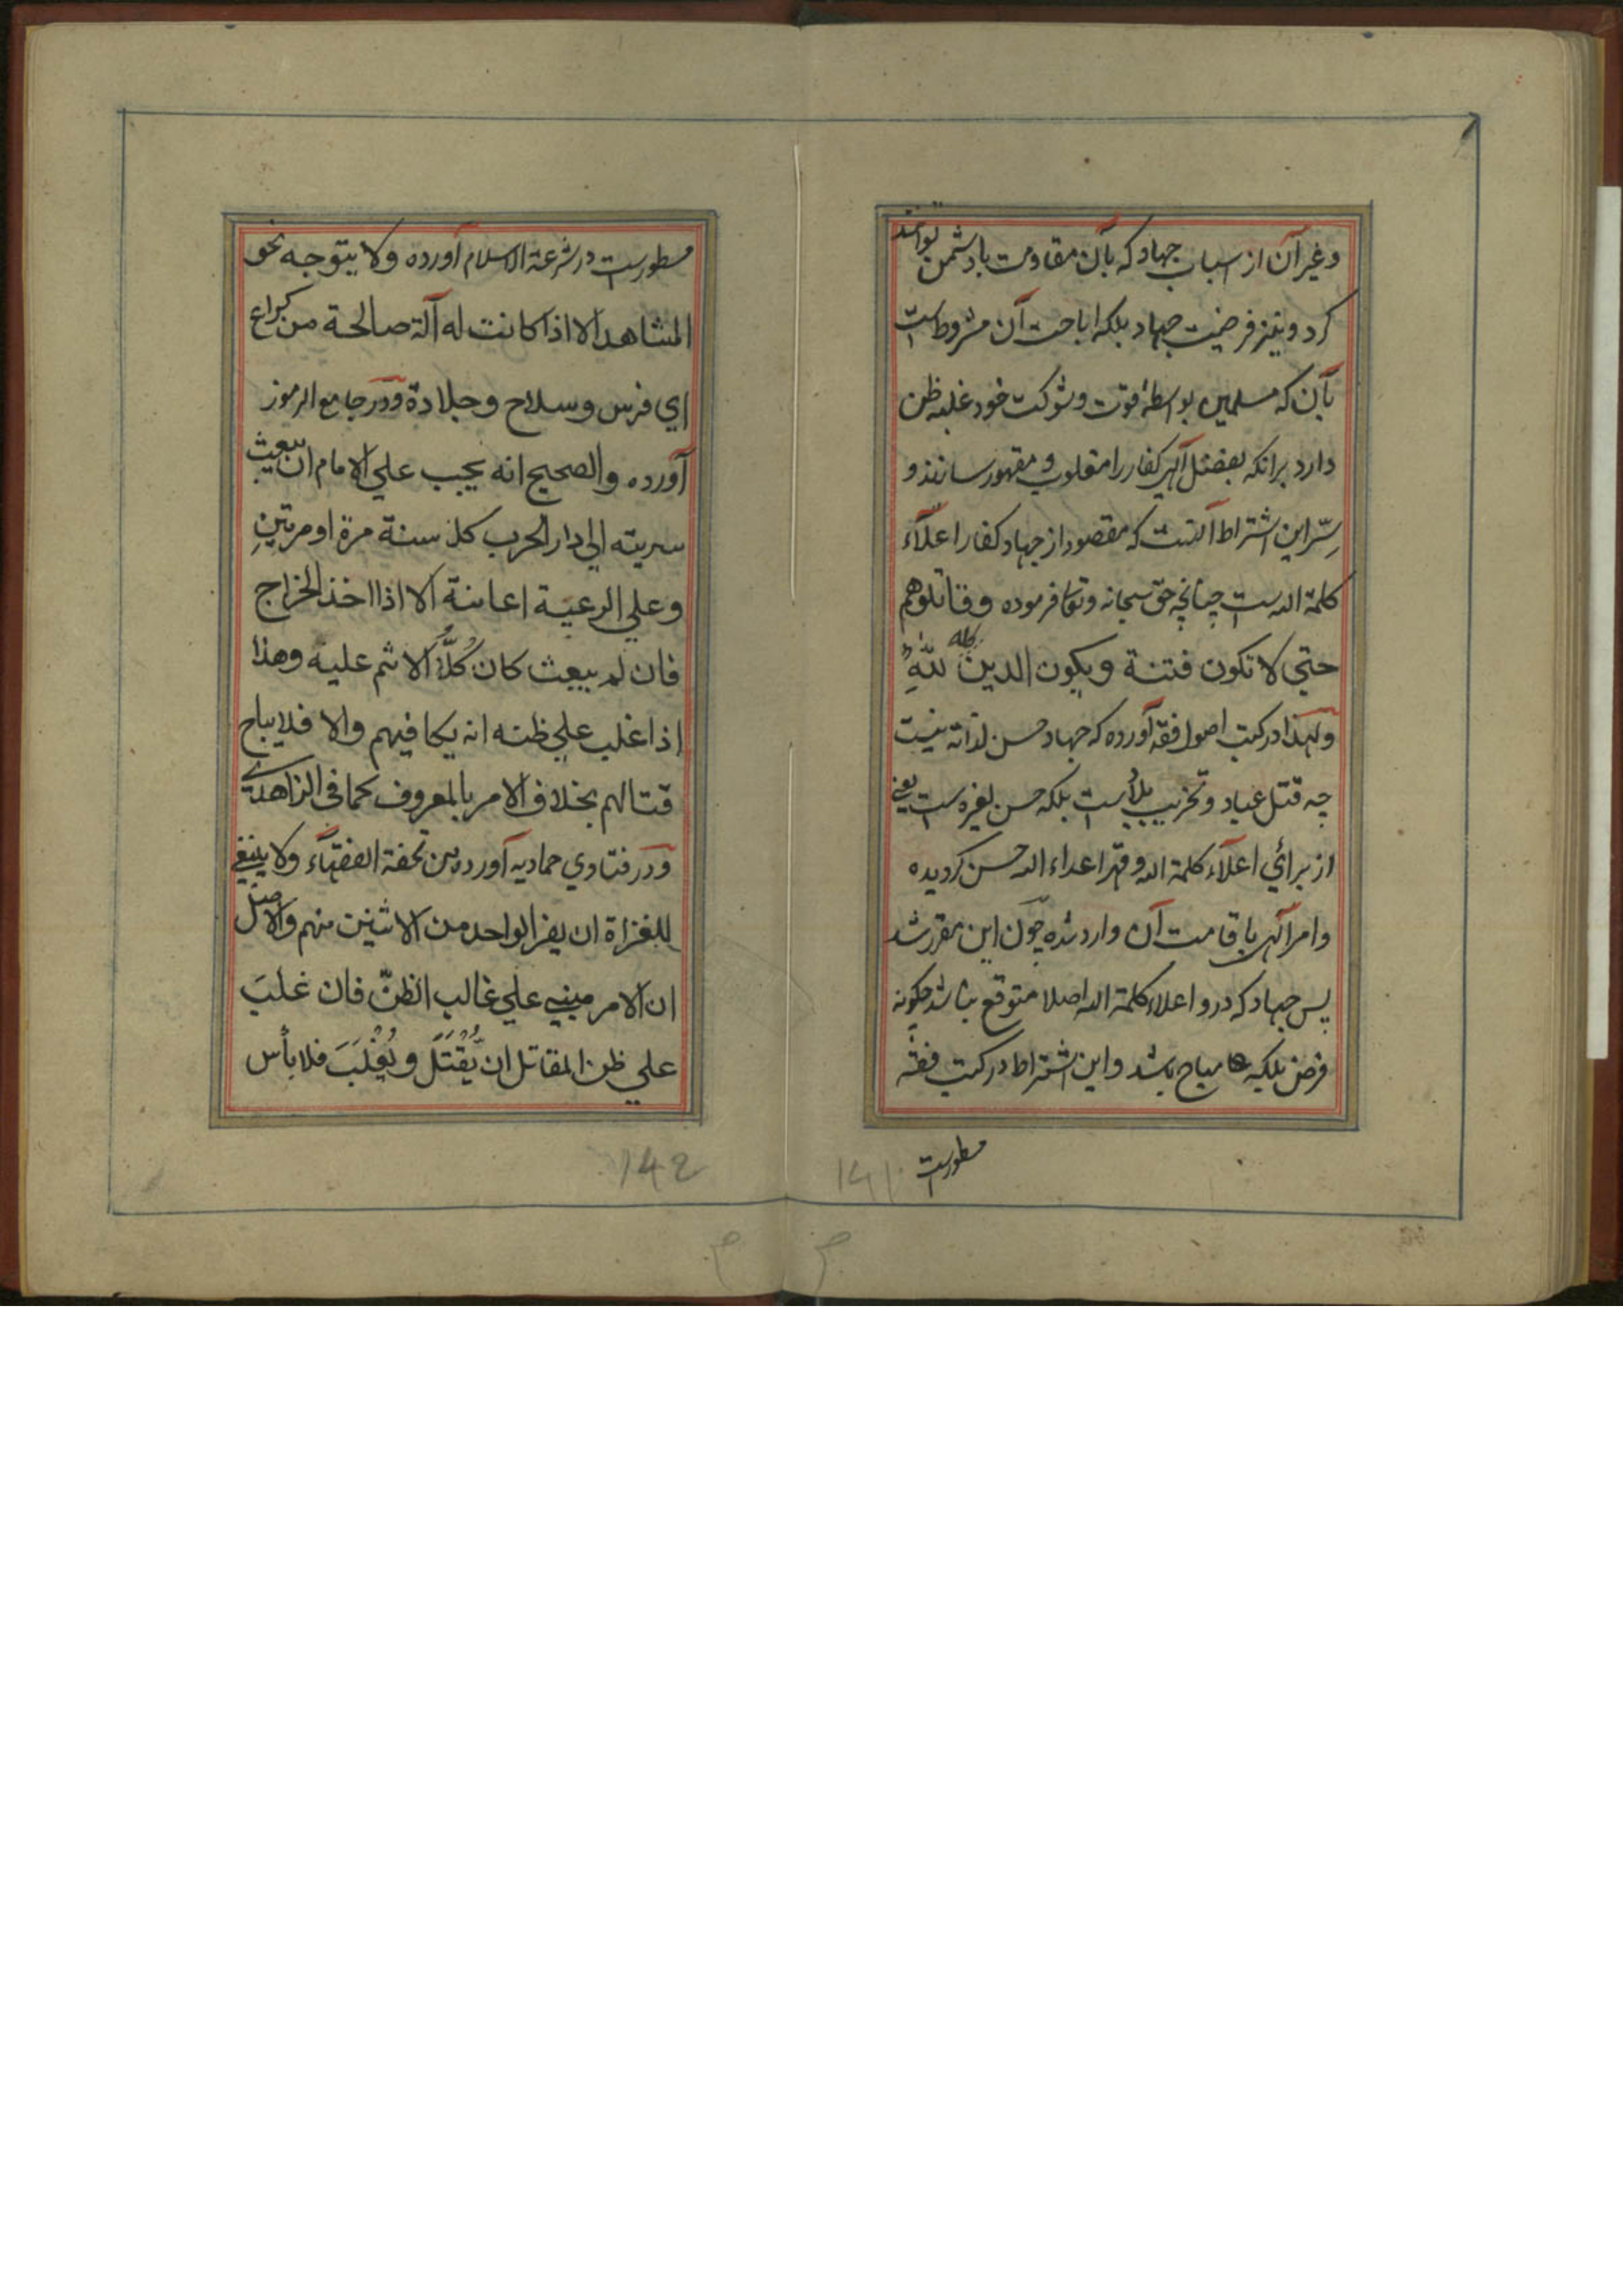 وغیر آن از اسباب جهاد که بآن مقاومت با دشمن توانند
کرد و نیز فرضیت جهاد بلکه اباحت آن مشروط است
بآن که مسلمین بواسطهٔ قوت و شوکت خود غلبه ظن
دارد برانکه بفضل آلهی کفار را مغلوب و مقهور سازند و
سِرّ این اشتراط آنست که مقصود از جهاد کفار اعلآء
کلمة الله ست چنانچه حق سبحانه وتعا فرموده وقاتلوهم
حتي لا تكون فتنة ويكون الدين كله للّٰهِ
ولهذا در کتب اصول فقه آورده که جهاد حسن لذاته نیست
چه قتل عباد و تخریب بلاد ست بلکه حسن لغیره ست یعنی
از برائي اعلآء کلمة الله وقهر اعداء الله حسن کردیده
و امر آلهی باقامت آن وارد شده چون این مقرر شد
پس جهاد که درو اعلاء کلمة الله اصلا متوقع نباشد چکونه
فرض بلکه مباح باشد و این اشتراط در کتب فقه
مسطورست
141
مسطورست در شرعة الاسلام آورده ولا يتوجه نحو
المشاهد الا اذا كانت له آلة صالحة من كراع
اي فرس وسلاح وجلادة ودر جامع الرموز
آورده والصحيح انه يجب علي الامام ان يبعث
سريته الي دار الحرب كل سنة مرة او مرتينِ
وعلي الرعية اعانة الا اذا اخذ الخراج
فان لم يبعث كان كُلُّ الاثم عليه وهذا
اذا غلب علي ظنه انه يكافيهم والا فلا يباح
قتالهم بخلاف الامر بالمعروف كما في الزاهدي
ودر فتاوي حماديه آورده من تحفة الفقهآء ولا ينبغي
للغزاة ان يفر الواحد من الاثنين منهم والاصل
ان الامر مبني علي غالب الظنّ فان غلبَ
علي ظن المقاتل ان يُقْتَلَ ويُغْلَبَ فلا بأس
142